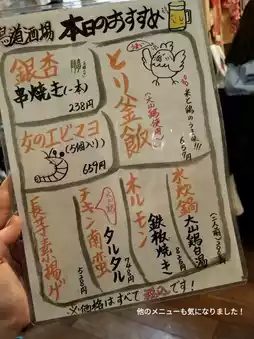 鳥道酒場 本日のおすすめ
とり釜飯
(大山鶏使用)
米と鶏のうま味!!!
銀杏
串焼き(一本)
238円
女のエビマヨ
(5個入り)
659円
水炊鍋
大山鶏白湯
ホルモン
鉄板焼き
チキン南蛮
タルタル
748円
長芋素揚げ
※価格はすべて税込です!
他のメニューも気になりました!